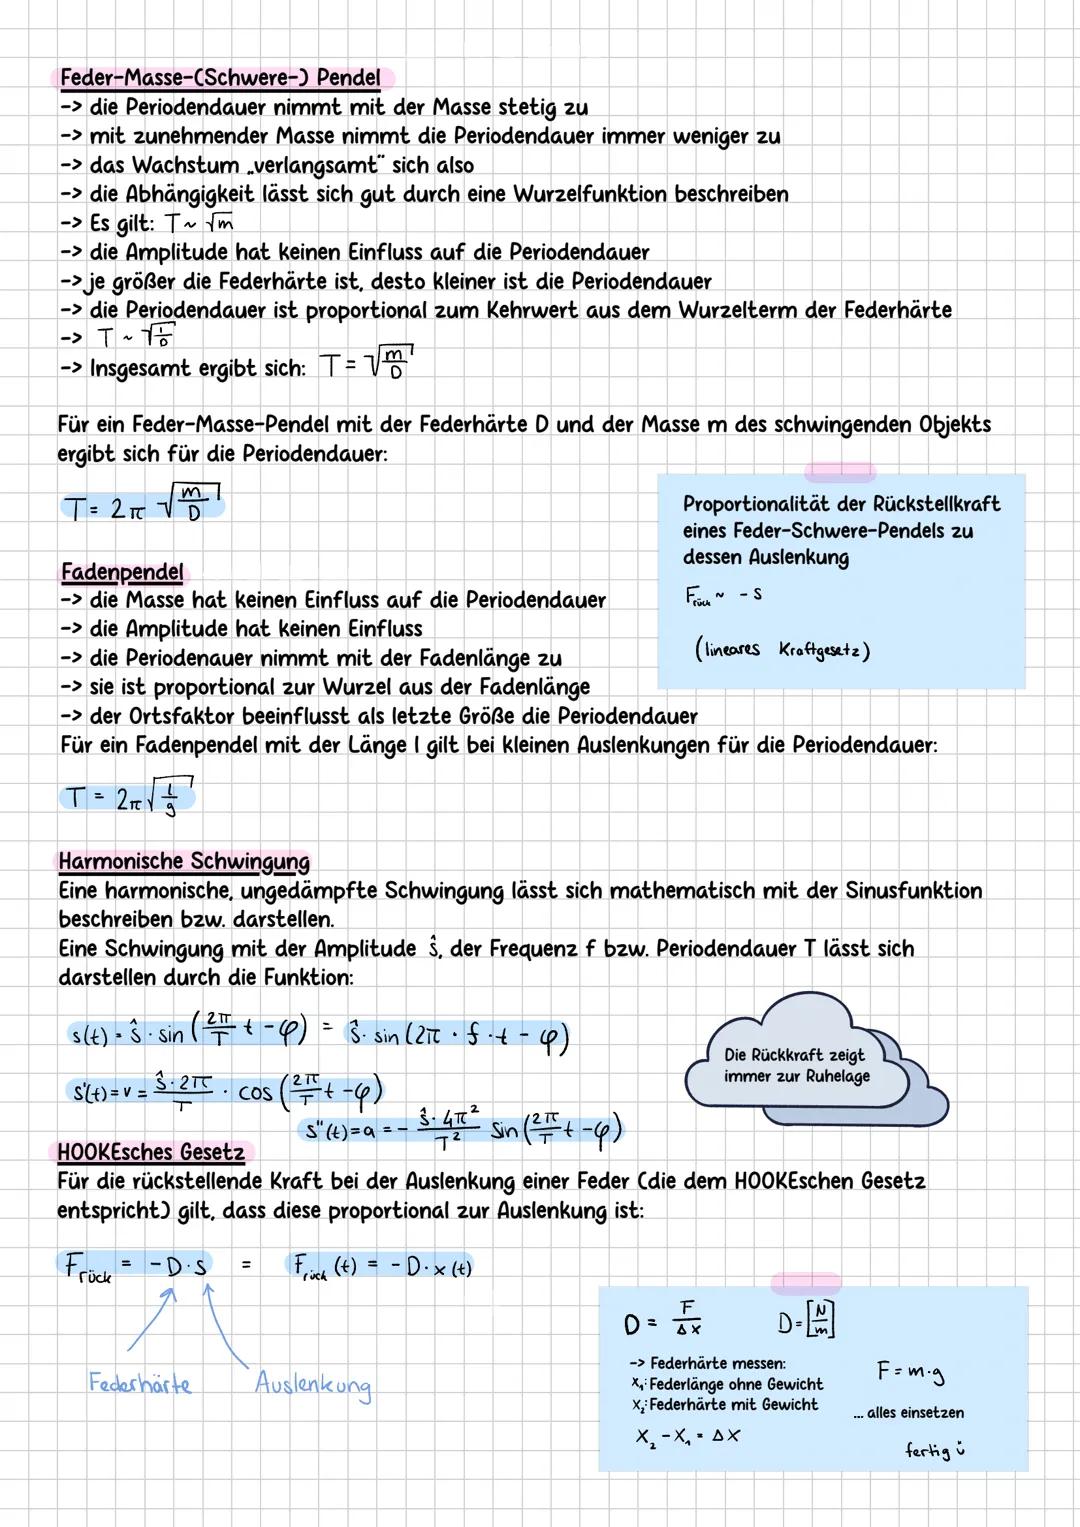 Feder-Masse-(Schwere-) Pendel
-> die Periodendauer nimmt mit der Masse stetig zu
-> mit zunehmender Masse nimmt die Periodendauer immer weniger zu
-> das Wachstum „verlangsamt“ sich also
-> die Abhängigkeit lässt sich gut durch eine Wurzelfunktion beschreiben
-> Es gilt: T ~ √m
-> die Amplitude hat keinen Einfluss auf die Periodendauer
-> je größer die Federhärte ist, desto kleiner ist die Periodendauer
-> die Periodendauer ist proportional zum Kehrwert aus dem Wurzelterm der Federhärte
-> T ~ √(1/D)
-> Insgesamt ergibt sich: T = √(m/D)
Für ein Feder-Masse-Pendel mit der Federhärte D und der Masse m des schwingenden Objekts
ergibt sich für die Periodendauer:
T = 2π √(m/D)
Proportionalität der Rückstellkraft
eines Feder-Schwere-Pendels zu
dessen Auslenkung
F_rück ~ - s
(lineares Kraftgesetz)
Fadenpendel
-> die Masse hat keinen Einfluss auf die Periodendauer
-> die Amplitude hat keinen Einfluss
-> die Periodenauer nimmt mit der Fadenlänge zu
-> sie ist proportional zur Wurzel aus der Fadenlänge
-> der Ortsfaktor beeinflusst als letzte Größe die Periodendauer
Für ein Fadenpendel mit der Länge l gilt bei kleinen Auslenkungen für die Periodendauer:
T = 2π √(l/g)
Harmonische Schwingung
Eine harmonische, ungedämpfte Schwingung lässt sich mathematisch mit der Sinusfunktion
beschreiben bzw. darstellen.
Eine Schwingung mit der Amplitude ŝ, der Frequenz f bzw. Periodendauer T lässt sich
darstellen durch die Funktion:
s(t) = ŝ · sin (2π/T t - φ) = ŝ · sin (2π · f · t - φ)
s'(t) = v = ŝ · 2π/T · cos (2π/T t - φ)
s"(t) = a = - ŝ · 4π²/T² sin (2π/T t - φ)
Die Rückkraft zeigt
immer zur Ruhelage
HOOKEsches Gesetz
Für die rückstellende Kraft bei der Auslenkung einer Feder (die dem HOOKEschen Gesetz
entspricht) gilt, dass diese proportional zur Auslenkung ist:
F_rück = - D · s = F_rück (t) = - D · x (t)
Federhärte Auslenkung
D = F/Δx D = [N/m]
-> Federhärte messen:
x₁: Federlänge ohne Gewicht
x₂: Federhärte mit Gewicht
x₂ - x₁ = Δx
F = m · g
... alles einsetzen
fertig ü